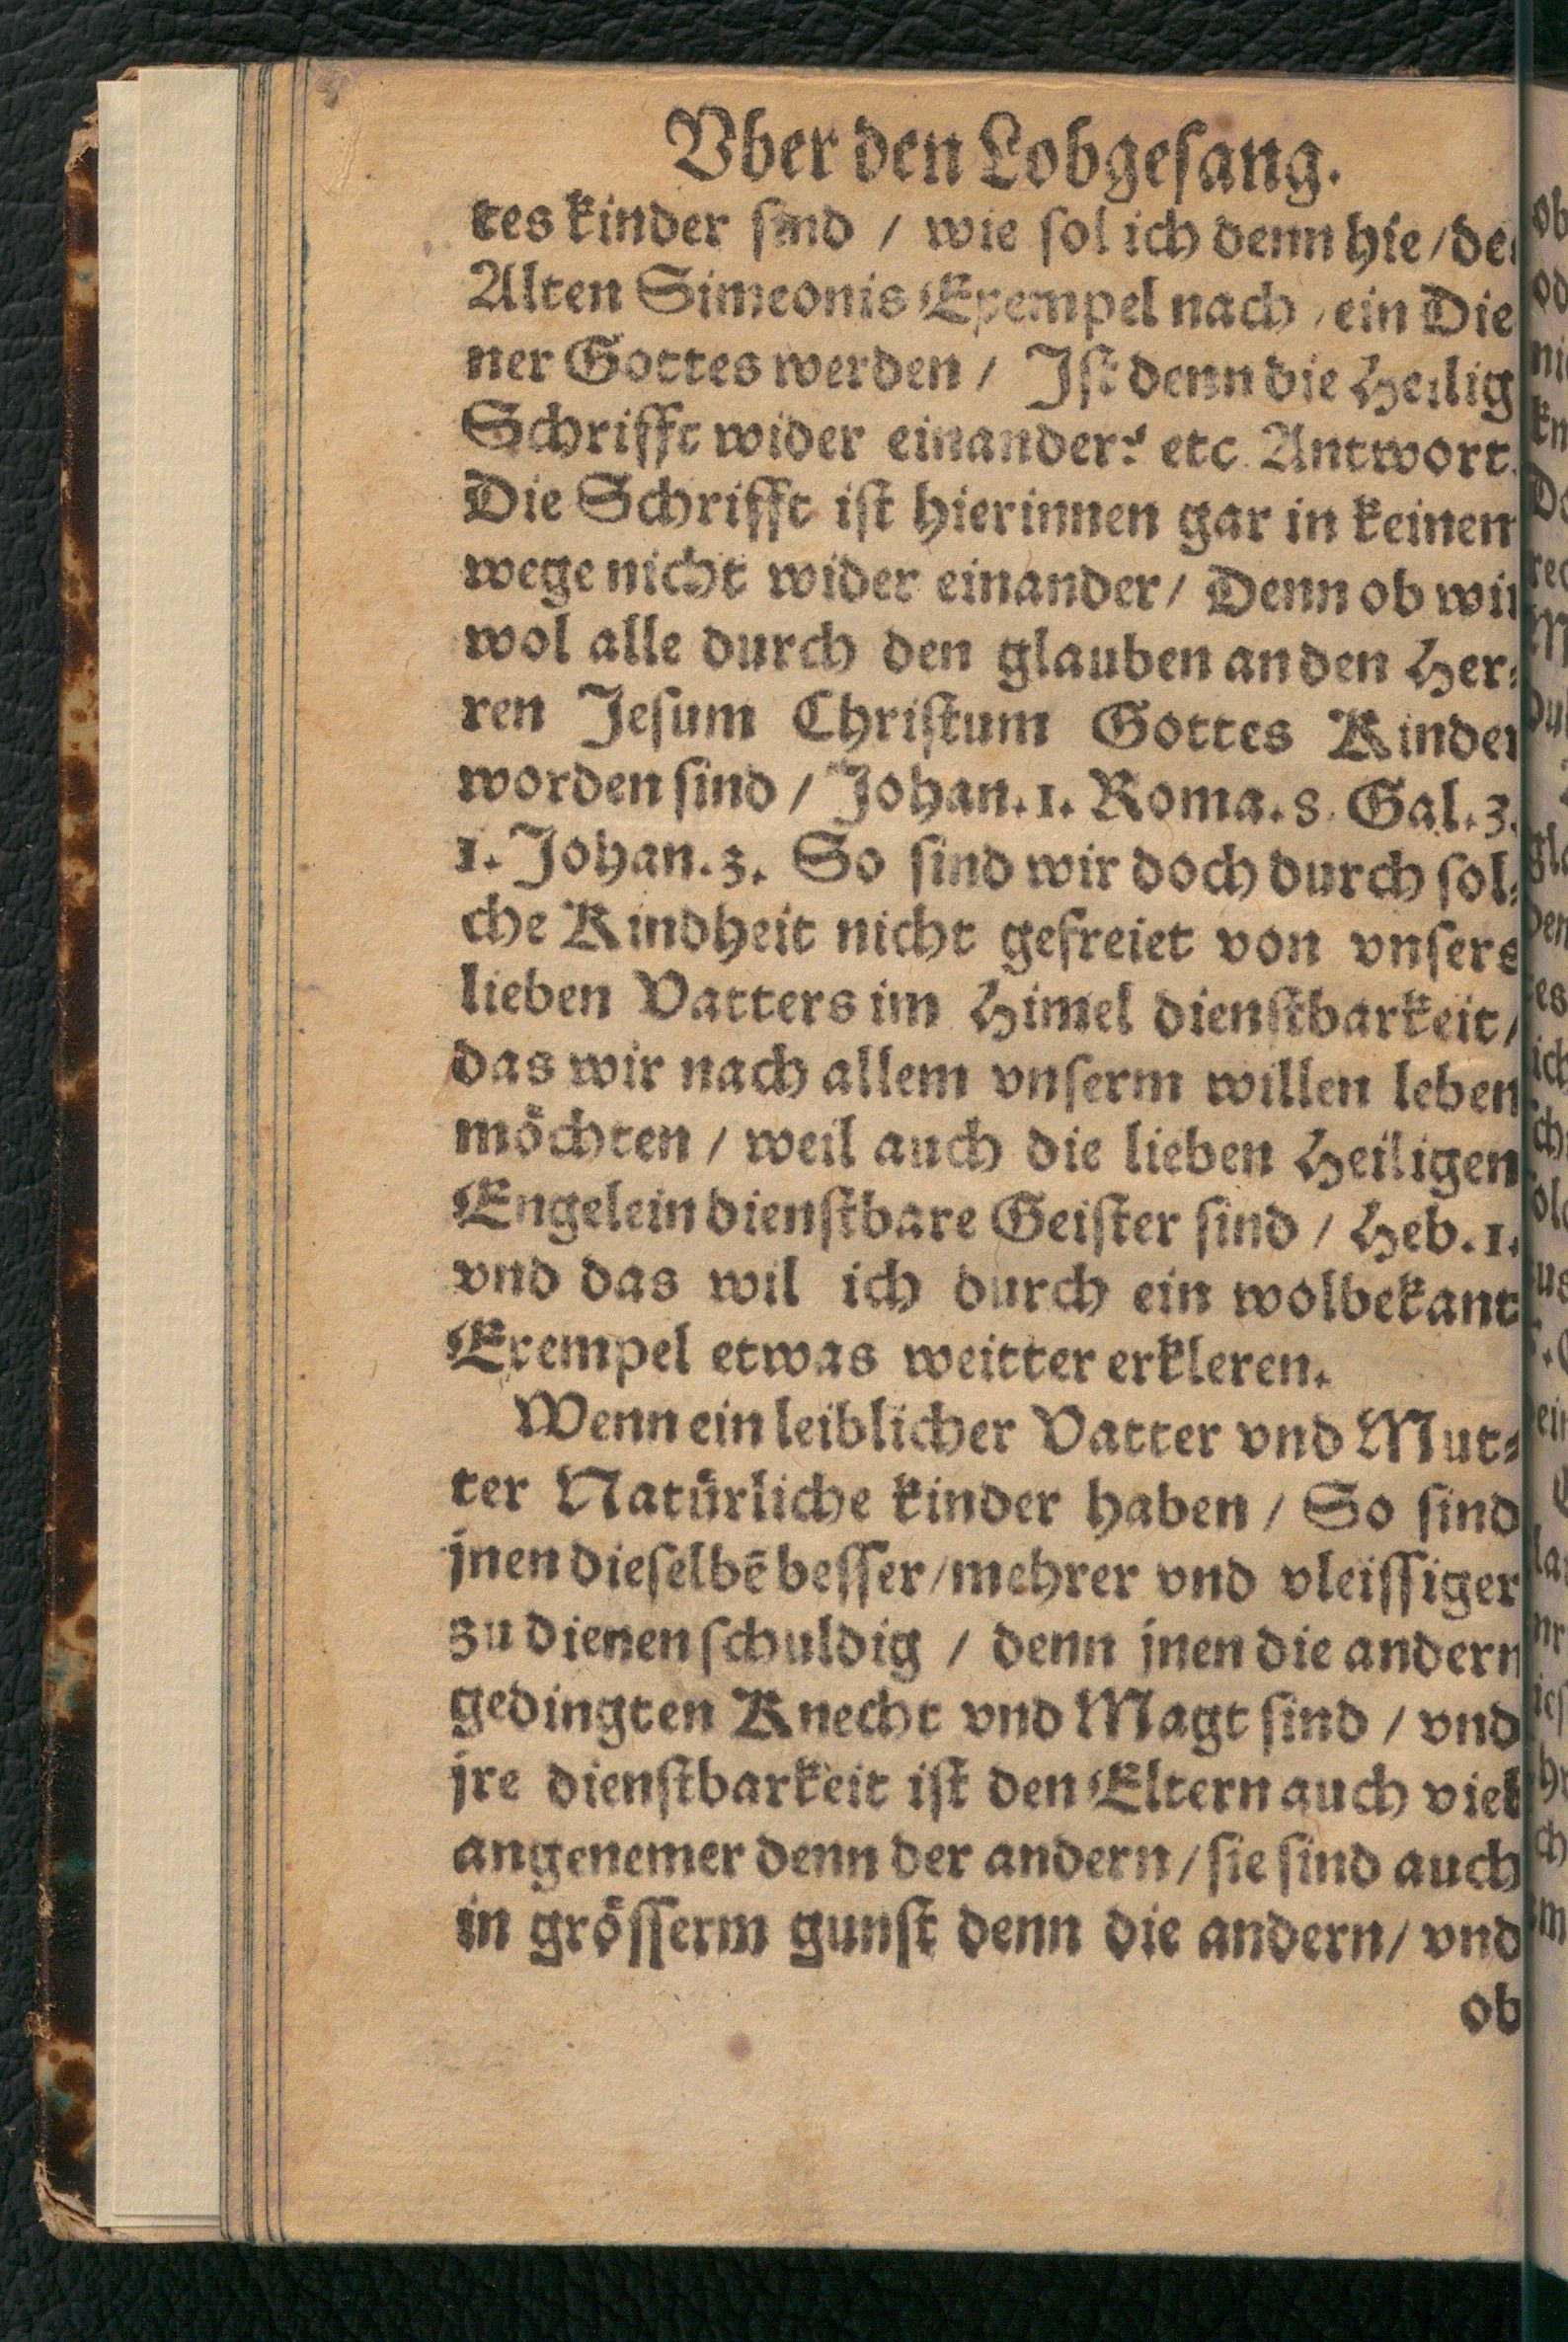 Vber den Lobgesang.
tes kinder sind / wie sol ich denn hie / de
Alten Simeonis Exempel nach / ein Die
ner Gottes werden / Ist denn die Heilig
Schrifft wider einander? etc. Antwort.
Die Schrifft ist hierinnen gar in keinen
wege nicht wider einander / Denn ob wir
wol alle durch den glauben an den Her⸗
ren Jesum Christum Gottes Kinder
worden sind / Johan. 1. Roma. 8. Gal. 3.
1. Johan. 3. So sind wir doch durch sol⸗
che Kindheit nicht gefreiet von vnsers
lieben Vatters im Himel dienstbarkeit /
das wir nach allem vnserm willen leben
möchten / weil auch die lieben Heiligen
Engelein dienstbare Geister sind / Heb. 1.
vnd das wil ich durch ein wolbekant
Exempel etwas weitter erkleren.
Wenn ein leiblicher Vatter vnd Mut⸗
ter Natürliche kinder haben / So sind
jnen dieselbē besser / mehrer vnd vleissiger
zu dienen schuldig / denn jnen die andern
gedingten Knecht vnd Magt sind / vnd
jre dienstbarkeit ist den Eltern auch viel
angenemer denn der andern / sie sind auch
in grösserm gunst denn die andern / vnd
ob